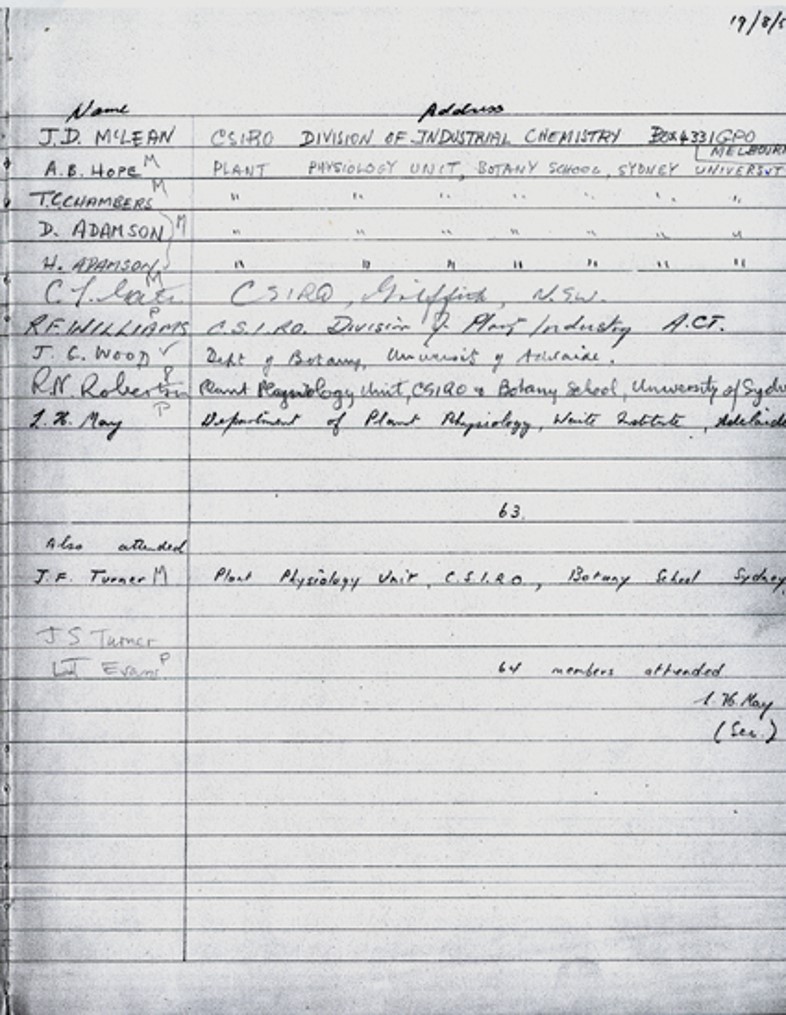 19/8/5
Name Address
J.D. McLEAN CSIRO DIVISION OF INDUSTRIAL CHEMISTRY Box 4331 GPO
MELBOUR
A.B. HOPE M PLANT PHYSIOLOGY UNIT, BOTANY SCHOOL, SYDNEY UNIVERSIT
T.C. CHAMBERS M " " " " " " "
D. ADAMSON M " " " " " " "
H. ADAMSON " " " " " " "
M CSIRO, Griffith, N.SW.
R.F. WILLIAMS P C.S.I.R.O. Division of Plant Industry A.C.T.
J. G. WOOD ✓ Dept of Botany, University of Adelaide.
R.N. Robertson Plant Physiology Unit, CSIRO & Botany School, University of Sydn
L. H. May P Department of Plant Physiology, Waite Institute, Adelaide
63.
Also attended
J.F. Turner M Plant Physiology Unit, C.S.I.R.O., Botany School Sydney
J S Turner
LT Evans P 64 members attended
L. H. May
(Sec.)